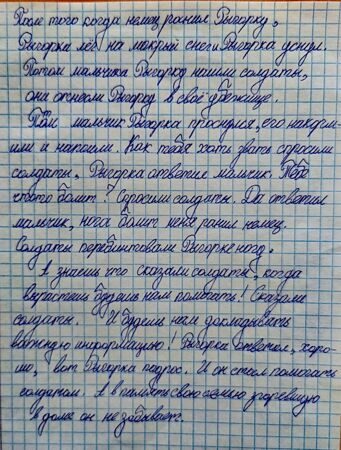 После того когда немец ранил Рыгорку,
Рыгорка лёг на мокрый снег и Рыгорка уснул.
Потом мальчика Рыгорку нашли солдаты,
они отнесли Рыгорку в своё убежище.
Там мальчик Рыгорка проснулся, его накорм-
или и напоили. Как тебя хоть звать спросили
солдаты, Рыгорка ответил мальчик. Тебе
что то болит? Спросили солдаты. Да ответил
мальчик, нога болит меня ранил немец.
Солдаты перебинтовали Рыгорке ногу.
А знаешь что сказали солдаты, когда
вырастешь будешь нам помогать! Сказали
солдаты. И будешь нам докладывать
важную информацию! Рыгорка ответил, хоро-
шо, вот Рыгорка подрос. И он стал помогать
солдатам. А в память свою семью згоревшую
в доме он не забывает.